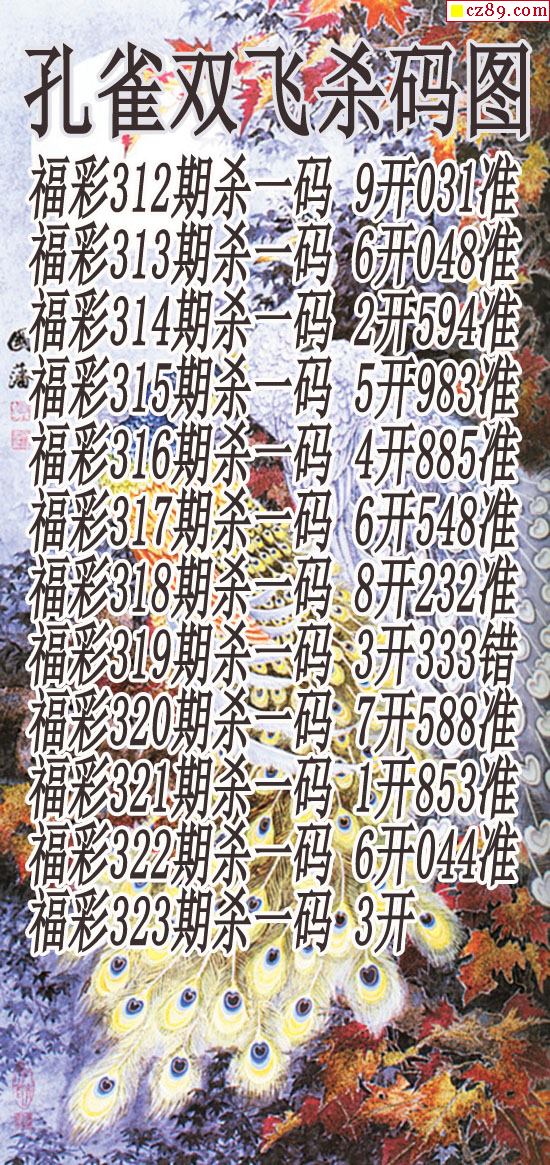 cz89.com
孔雀双飞杀码图
福彩312期杀一码 9开031准
福彩313期杀一码 6开048准
福彩314期杀一码 2开594准
福彩315期杀一码 5开983准
福彩316期杀一码 4开885准
福彩317期杀一码 6开548准
福彩318期杀一码 8开232准
福彩319期杀一码 3开333错
福彩320期杀一码 7开588准
福彩321期杀一码 1开853准
福彩322期杀一码 6开044准
福彩323期杀一码 3开